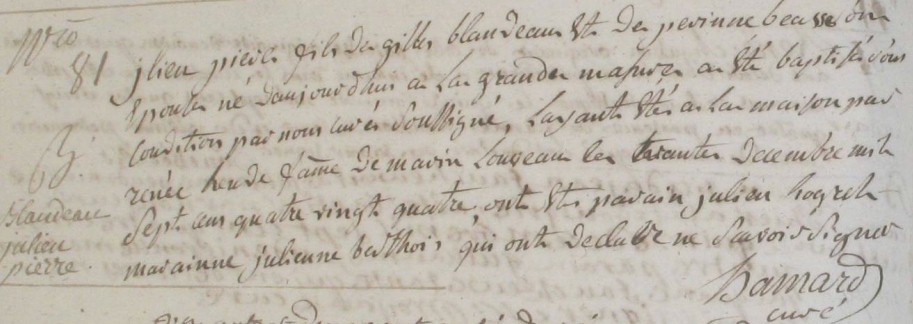 81
jlien pierre fils de gilles blandeau et de perinne beausson
Epoube né d'aujourd'hui a la grande masure a été baptisé sous
condition par nous curé soussigné, layant été a la maison par
renée hende fâme de marin Louveau le trante decembre mil
sept cens quatre vingt quatre, ont été parain julien hogrel
marainne julienne berthois qui ont declare ne savoir signer
Blandeau
julien
pierre.
hamard
curé